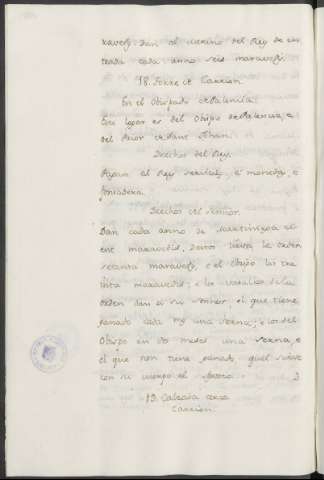 ravedis. Dan al merino del Rey de en
trada cada anno seis maravedis.
18. Torre de Carrion
En el Obispado de Palencia.
Este logar es del Obispo de Palencia, e
del Prior de Sant Johan.
Drechos del Rey.
Pagan al Rey servicios, e monedas, e
fonsadera.
Drechos del sennor.
Dan cada anno de martiniega
cient maravedis, destos lieva la orden
setenta maravedis, e el Obispo los tre
inta maravedis, e los vasallos de la
orden dan a su sennor el que tiene
ganado cada mes una serna, e los del
Obispo en dos meses una serna, e
el que non tiene ganado, quel sirve
con su cuerpo el
19. Calzada cerca
Carrion.